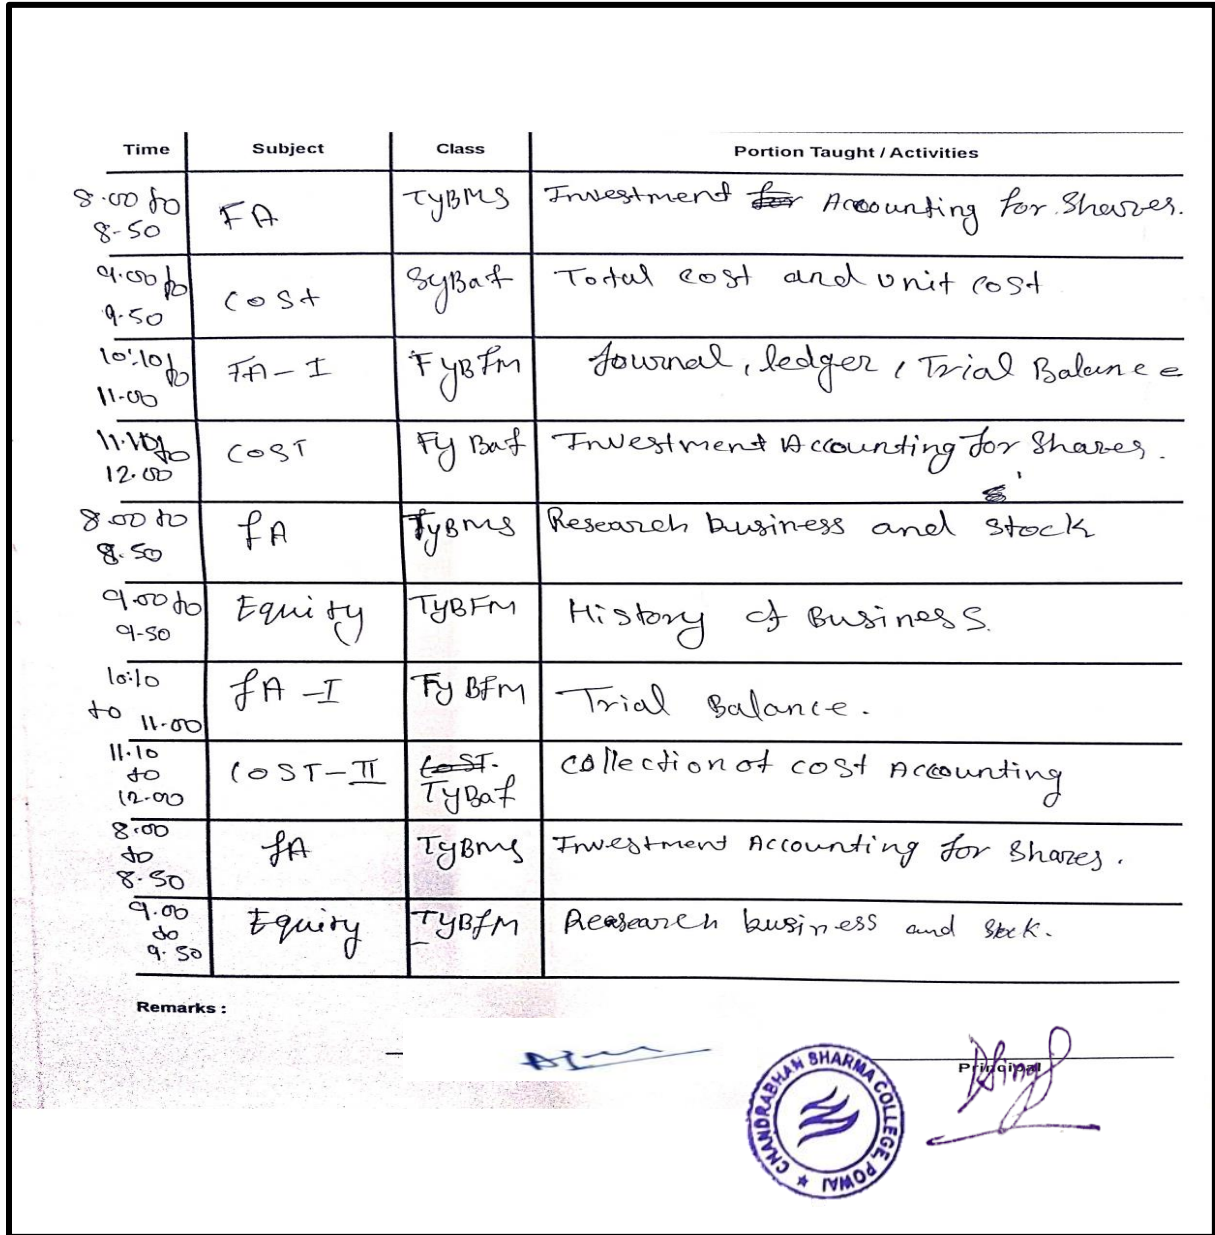 Time Subject Class Portion Taught / Activities
8.00 to 8-50 FA TyBMS Investment for Accounting for Shares.
9.00 to 9.50 Cost SyBaf Total cost and unit cost
10:10 to 11.00 FA-I FyBfm Journal, ledger, Trial Balance
11.10 to 12.00 COST Fy Baf Investment Accounting for Shares.
8.00 to 8.50 fA TyBMS Research business and stock
9.00 to 9-50 Equity TyBFM History of Business.
10:10 to 11.00 fA-I Fy BFM Trial Balance.
11.10 to 12.00 COST-II COST. TyBaf Collection of cost Accounting
8.00 to 8.50 fA TyBMS Investment Accounting for Shares.
9.00 to 9.50 Equity TyBfM Reasearch business and
Remarks :
Principal
CHANDRABHAN SHARMA COLLEGE, POWAI